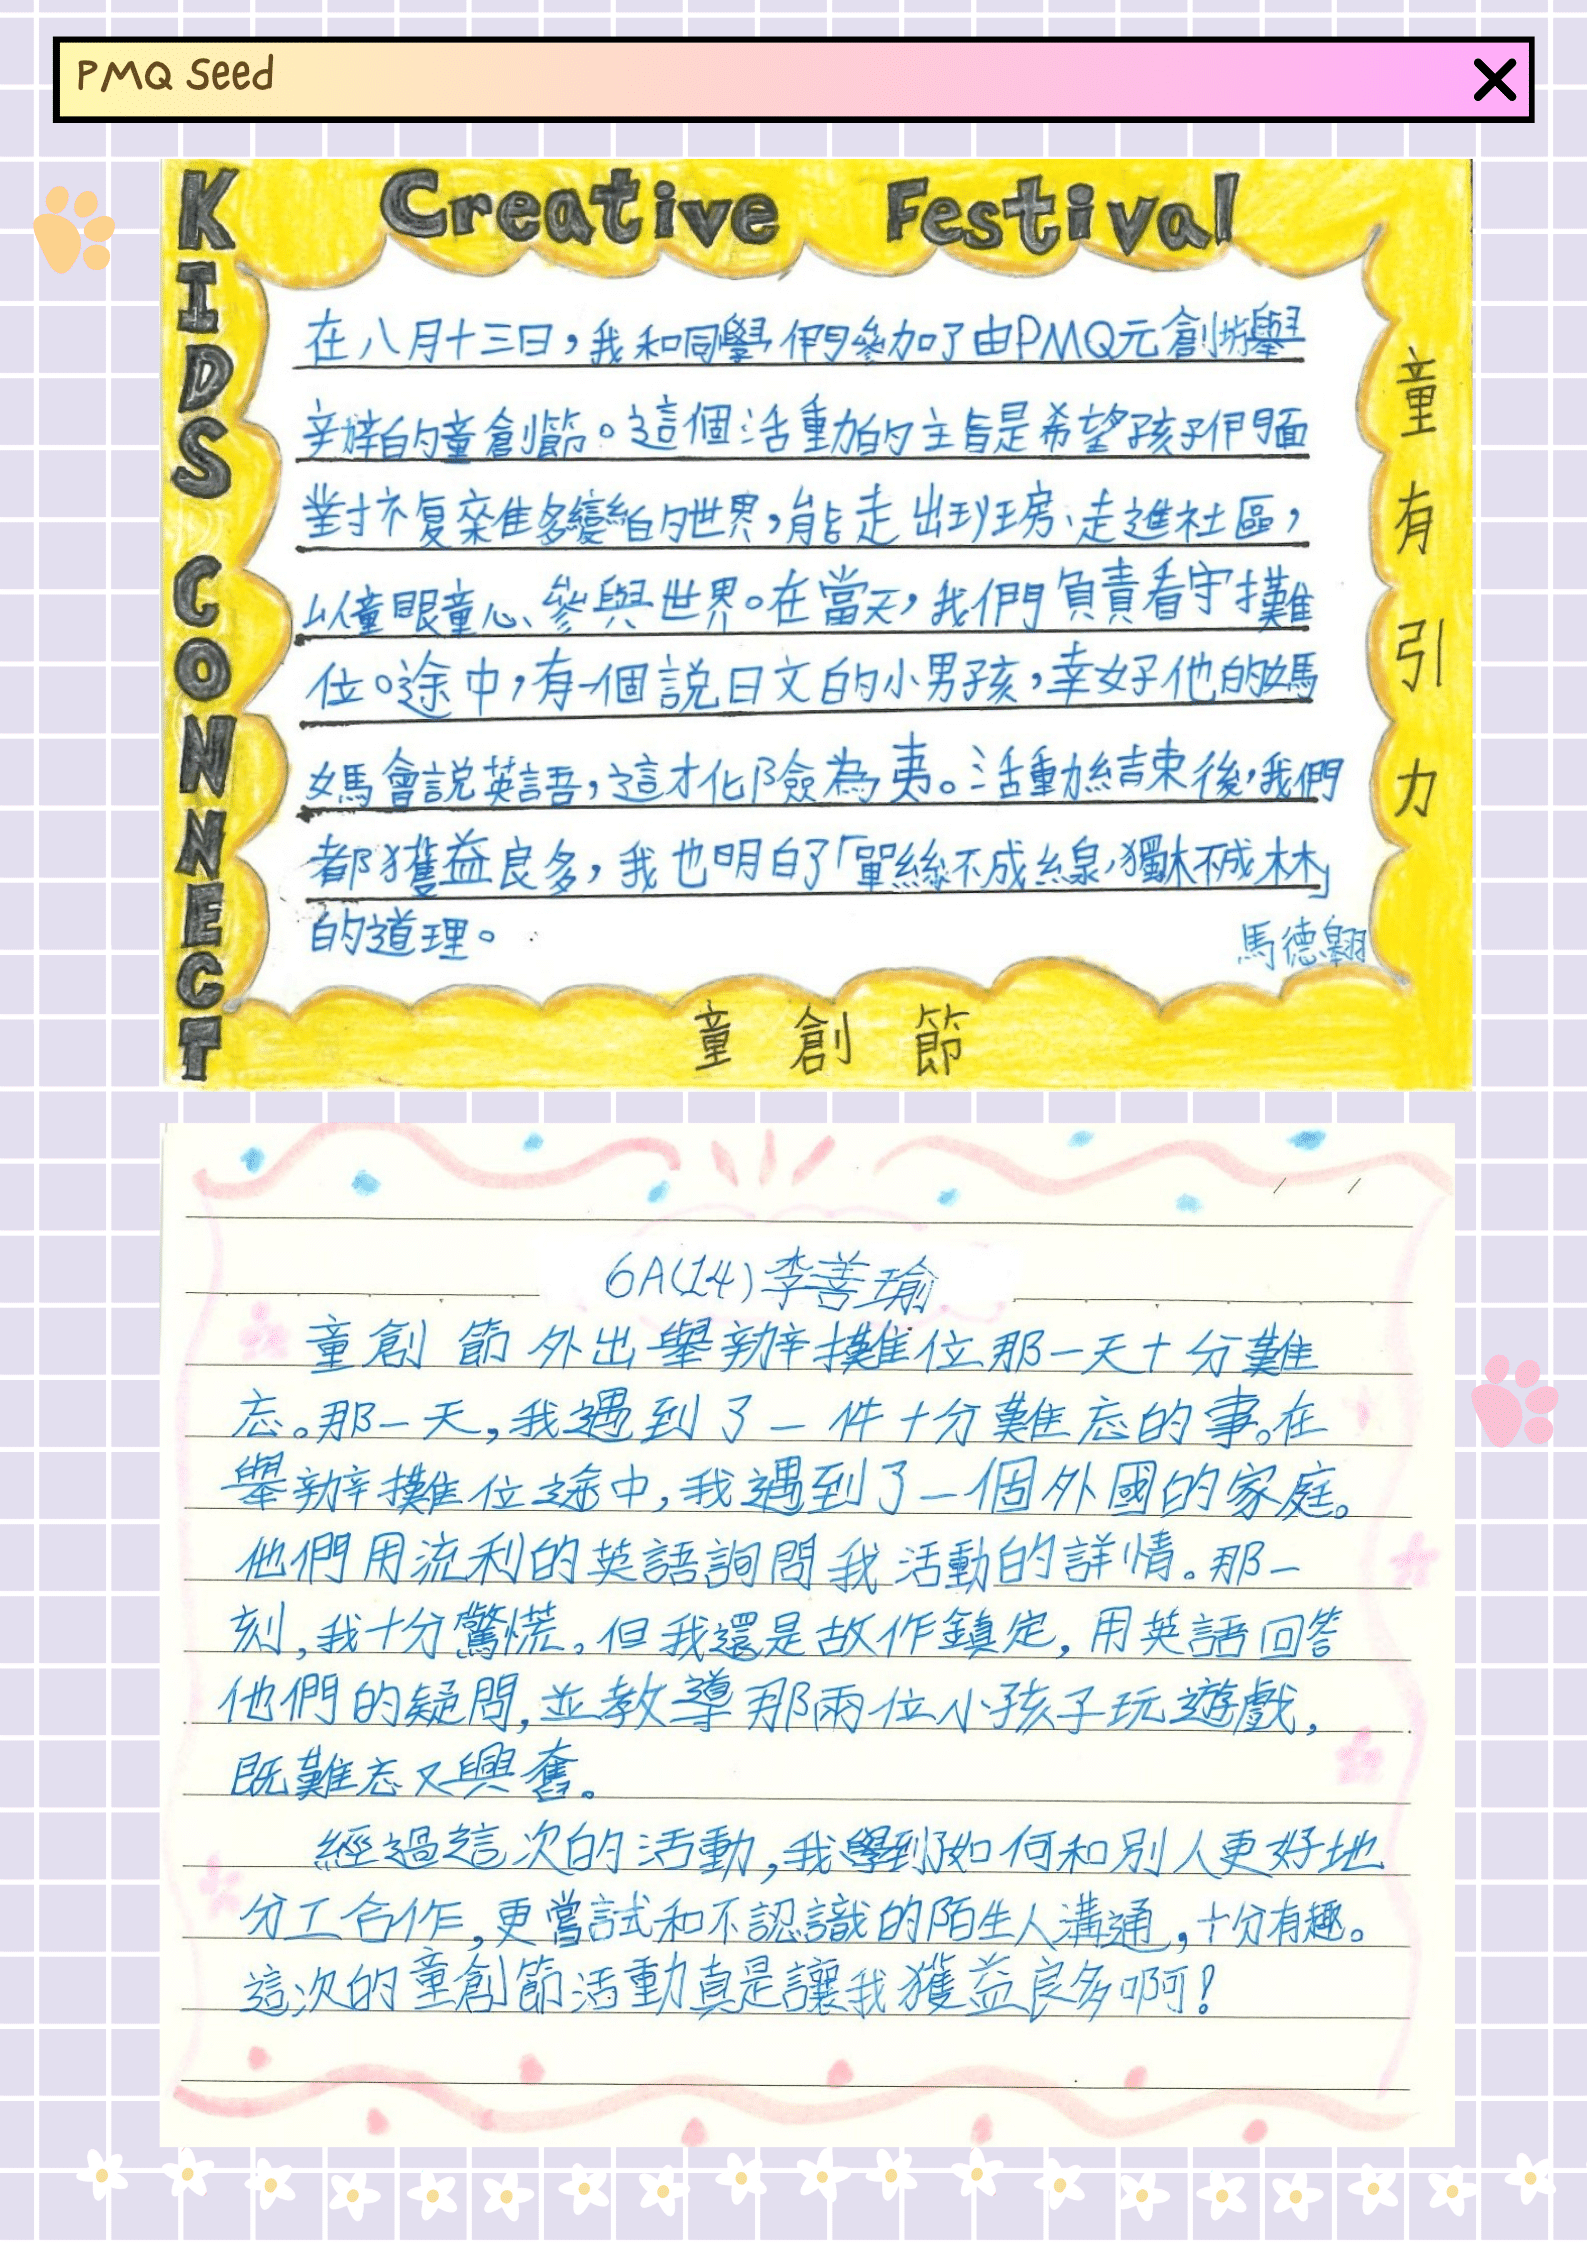 PMQ Seed
Creative Festival
KIDS CONNECT
童有引力
在八月十三日，我和同學們參加了由PMQ元創坊舉
辦的童創節。這個活動的主旨是希望孩子們面
對複雜多變的世界，能走出班房、走進社區，
以童眼童心、參與世界。在當天，我們負責看守攤
位。途中，有一個說日文的小男孩，幸好他的媽
媽會說英語，這才化險為夷。活動結束後，我們
都獲益良多，我也明白了「單絲不成線，獨木不成林」
的道理。
馬德翱
童創節
6A(14)李善瑜
童創節外出舉辦攤位那一天十分難
忘。那一天，我遇到了一件十分難忘的事。在
舉辦攤位途中，我遇到了一個外國的家庭。
他們用流利的英語詢問我活動的詳情。那一
刻，我十分驚慌。但我還是故作鎮定，用英語回答
他們的疑問，並教導那兩位小孩子玩遊戲，
既難忘又興奮。
經過這次的活動，我學到了如何和別人更好地
分工合作，更嘗試和不認識的陌生人溝通，十分有趣。
這次的童創節活動真是讓我獲益良多啊！